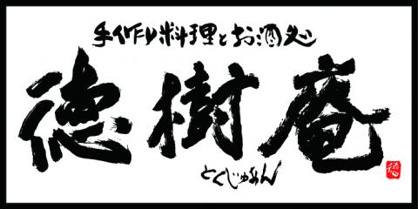 手作り料理とお酒処
徳樹庵
とくじゅあん
徳